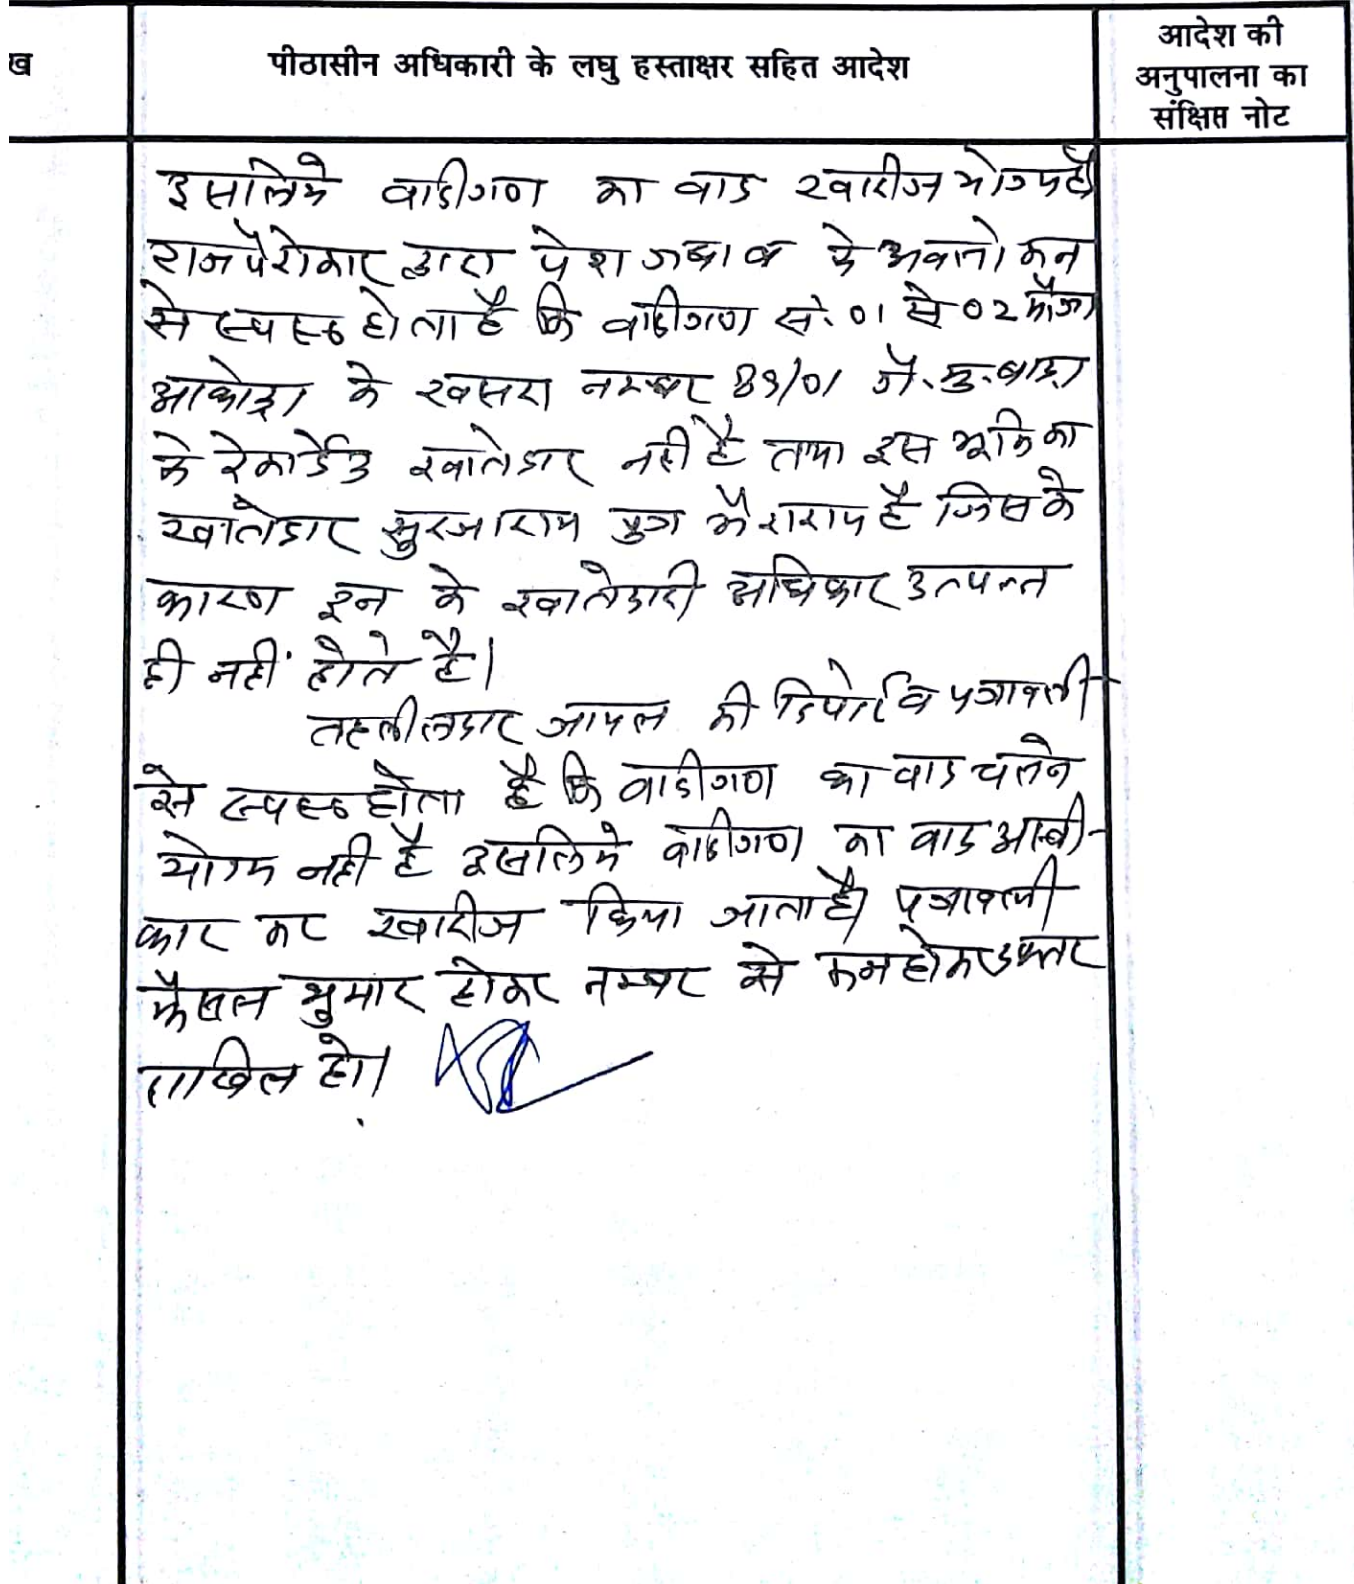 ख
पीठासीन अधिकारी के लघु हस्ताक्षर सहित आदेश
आदेश की
अनुपालना का
संक्षिप्त नोट
इसलिये वादीगण का वाद खारीज योग्य है
राजपैरोकार द्वारा पेश जबाब के अवलोकन
से स्पष्ठ होता है कि वादीगण सं. 01 से 02 मौजा
आकोड़ा के खसरा नम्बर 89/01 गै. मु. बाड़ा
के रेकार्डेड खातेदार नही है तथा इस भूमि का
खातेदार सुरजाराम पुत्र भैराराम है जिसके
कारण इन के खातेदारी अधिकार उत्पन्न
ही नहीं होते है।
तहसीलदार जायल की रिपोर्ट व पत्रावली
से स्पष्ठ होता है कि वादीगण का वाद चलने
योग्य नही है इसलिये वादीगण का वाद अस्वी-
कार कर खारीज किया जाता है। पत्रावली
फैसल शुमार होकर नम्बर से कम होकर दफ्तर
दाखिल हो।